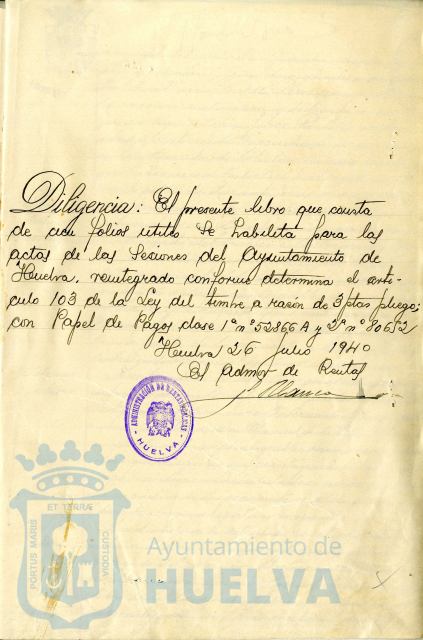 Diligencia: El presente libro que consta
de cien folios utiles se habilita para las
actas de las Sesiones del Ayuntamiento de
Huelva, reintegrado conforme determina el artí-
culo 103 de la Ley del timbre a razón de 3 ptas pliego;
con Papel de Pagos clase 1ª nº 52866 A y 2ª nº 80652
Huelva 26 Julio 1940
El Admor de Rentas
Blanco
ADMINISTRACIÓN DE RENTAS PÚBLICAS
HUELVA
ET TERRÆ
PORTUS MARIS
CUSTODIA
Ayuntamiento de
HUELVA